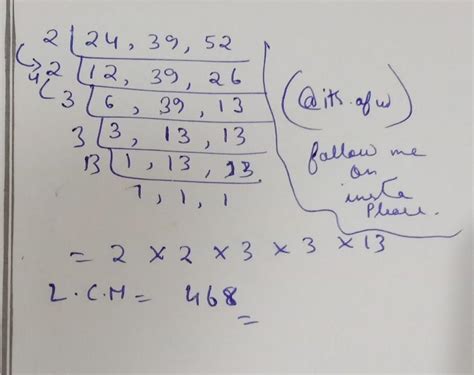 2 | 24, 39, 52
4 2 | 12, 39, 26
3 | 6, 39, 13
3 | 3, 13, 13
13 | 1, 13, 13
1, 1, 1
(@its.afw)
follow me
on
insta
Please.
= 2 × 2 × 3 × 3 × 13
L.C.M = 468